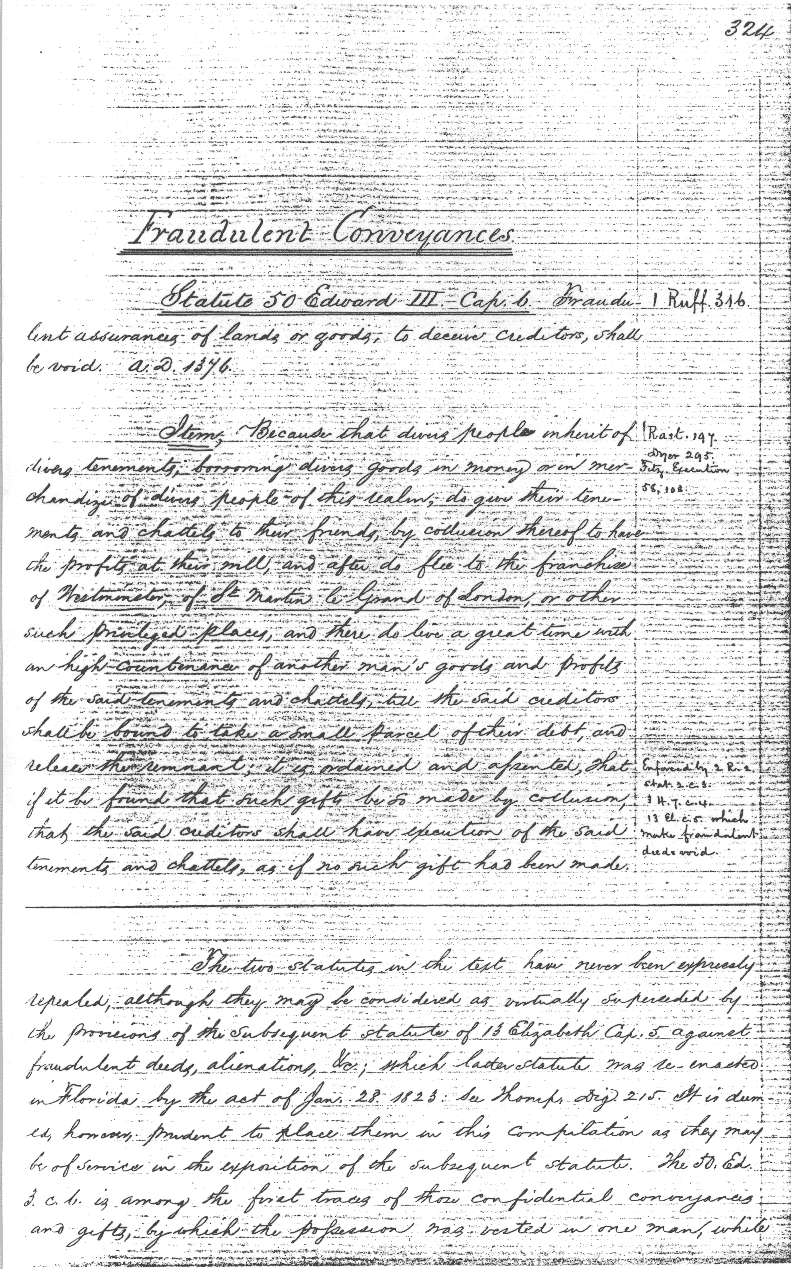 324
Fraudulent Conveyances
Statute 50 Edward III. Cap. 6. Fraudu-
1 Ruff. 316
lent assurances of lands or goods, to deceive creditors, shall
be void. A.D. 1376.
Item, Because that divers people inherit of
1 Rast. 197.
divers tenements, borrowing divers goods in money or in mer-
Dyer 295.
Fitz. Execution
chandize of divers people of this realm, do give their tene-
58, 108.
ments and chattels to their friends, by collusion thereof to have
the profits at their will, and after do flee to the franchise
of Westminster, of St Martin le Grand of London, or other
such privileged places, and there do live a great time with
an high countenance of another man's goods and profits
of the said tenements and chattels, till the said creditors
shall be bound to take a small parcel of their debt, and
release the remnant, it is ordained and assented, that
Enforced by 2 R. 2.
Stat. 2. c. 3.
if it be found that such gifts be so made by collusion,
3 H. 7. c. 4.
that the said creditors shall have execution of the said
13 El. c. 5. which
make fraudulent
tenements and chattels, as if no such gift had been made.
deeds void.
The two statutes in the text have never been expressly
repealed, although they may be considered as virtually superceded by
the provisions of the subsequent statute of 13 Elizabeth Cap. 5. against
fraudulent deeds, alienations, &c.; which later statute was re-enacted
in Florida by the act of Jan. 28. 1823. See Thomp. Dig. 215. It is deem
ed, however, prudent to place them in this compilation as they may
be of service in the exposition of the subsequent statute. The 50. Ed.
3. c. 6. is among the first traces of those confidential conveyances
and gifts, by which the possession was vested in one man, while